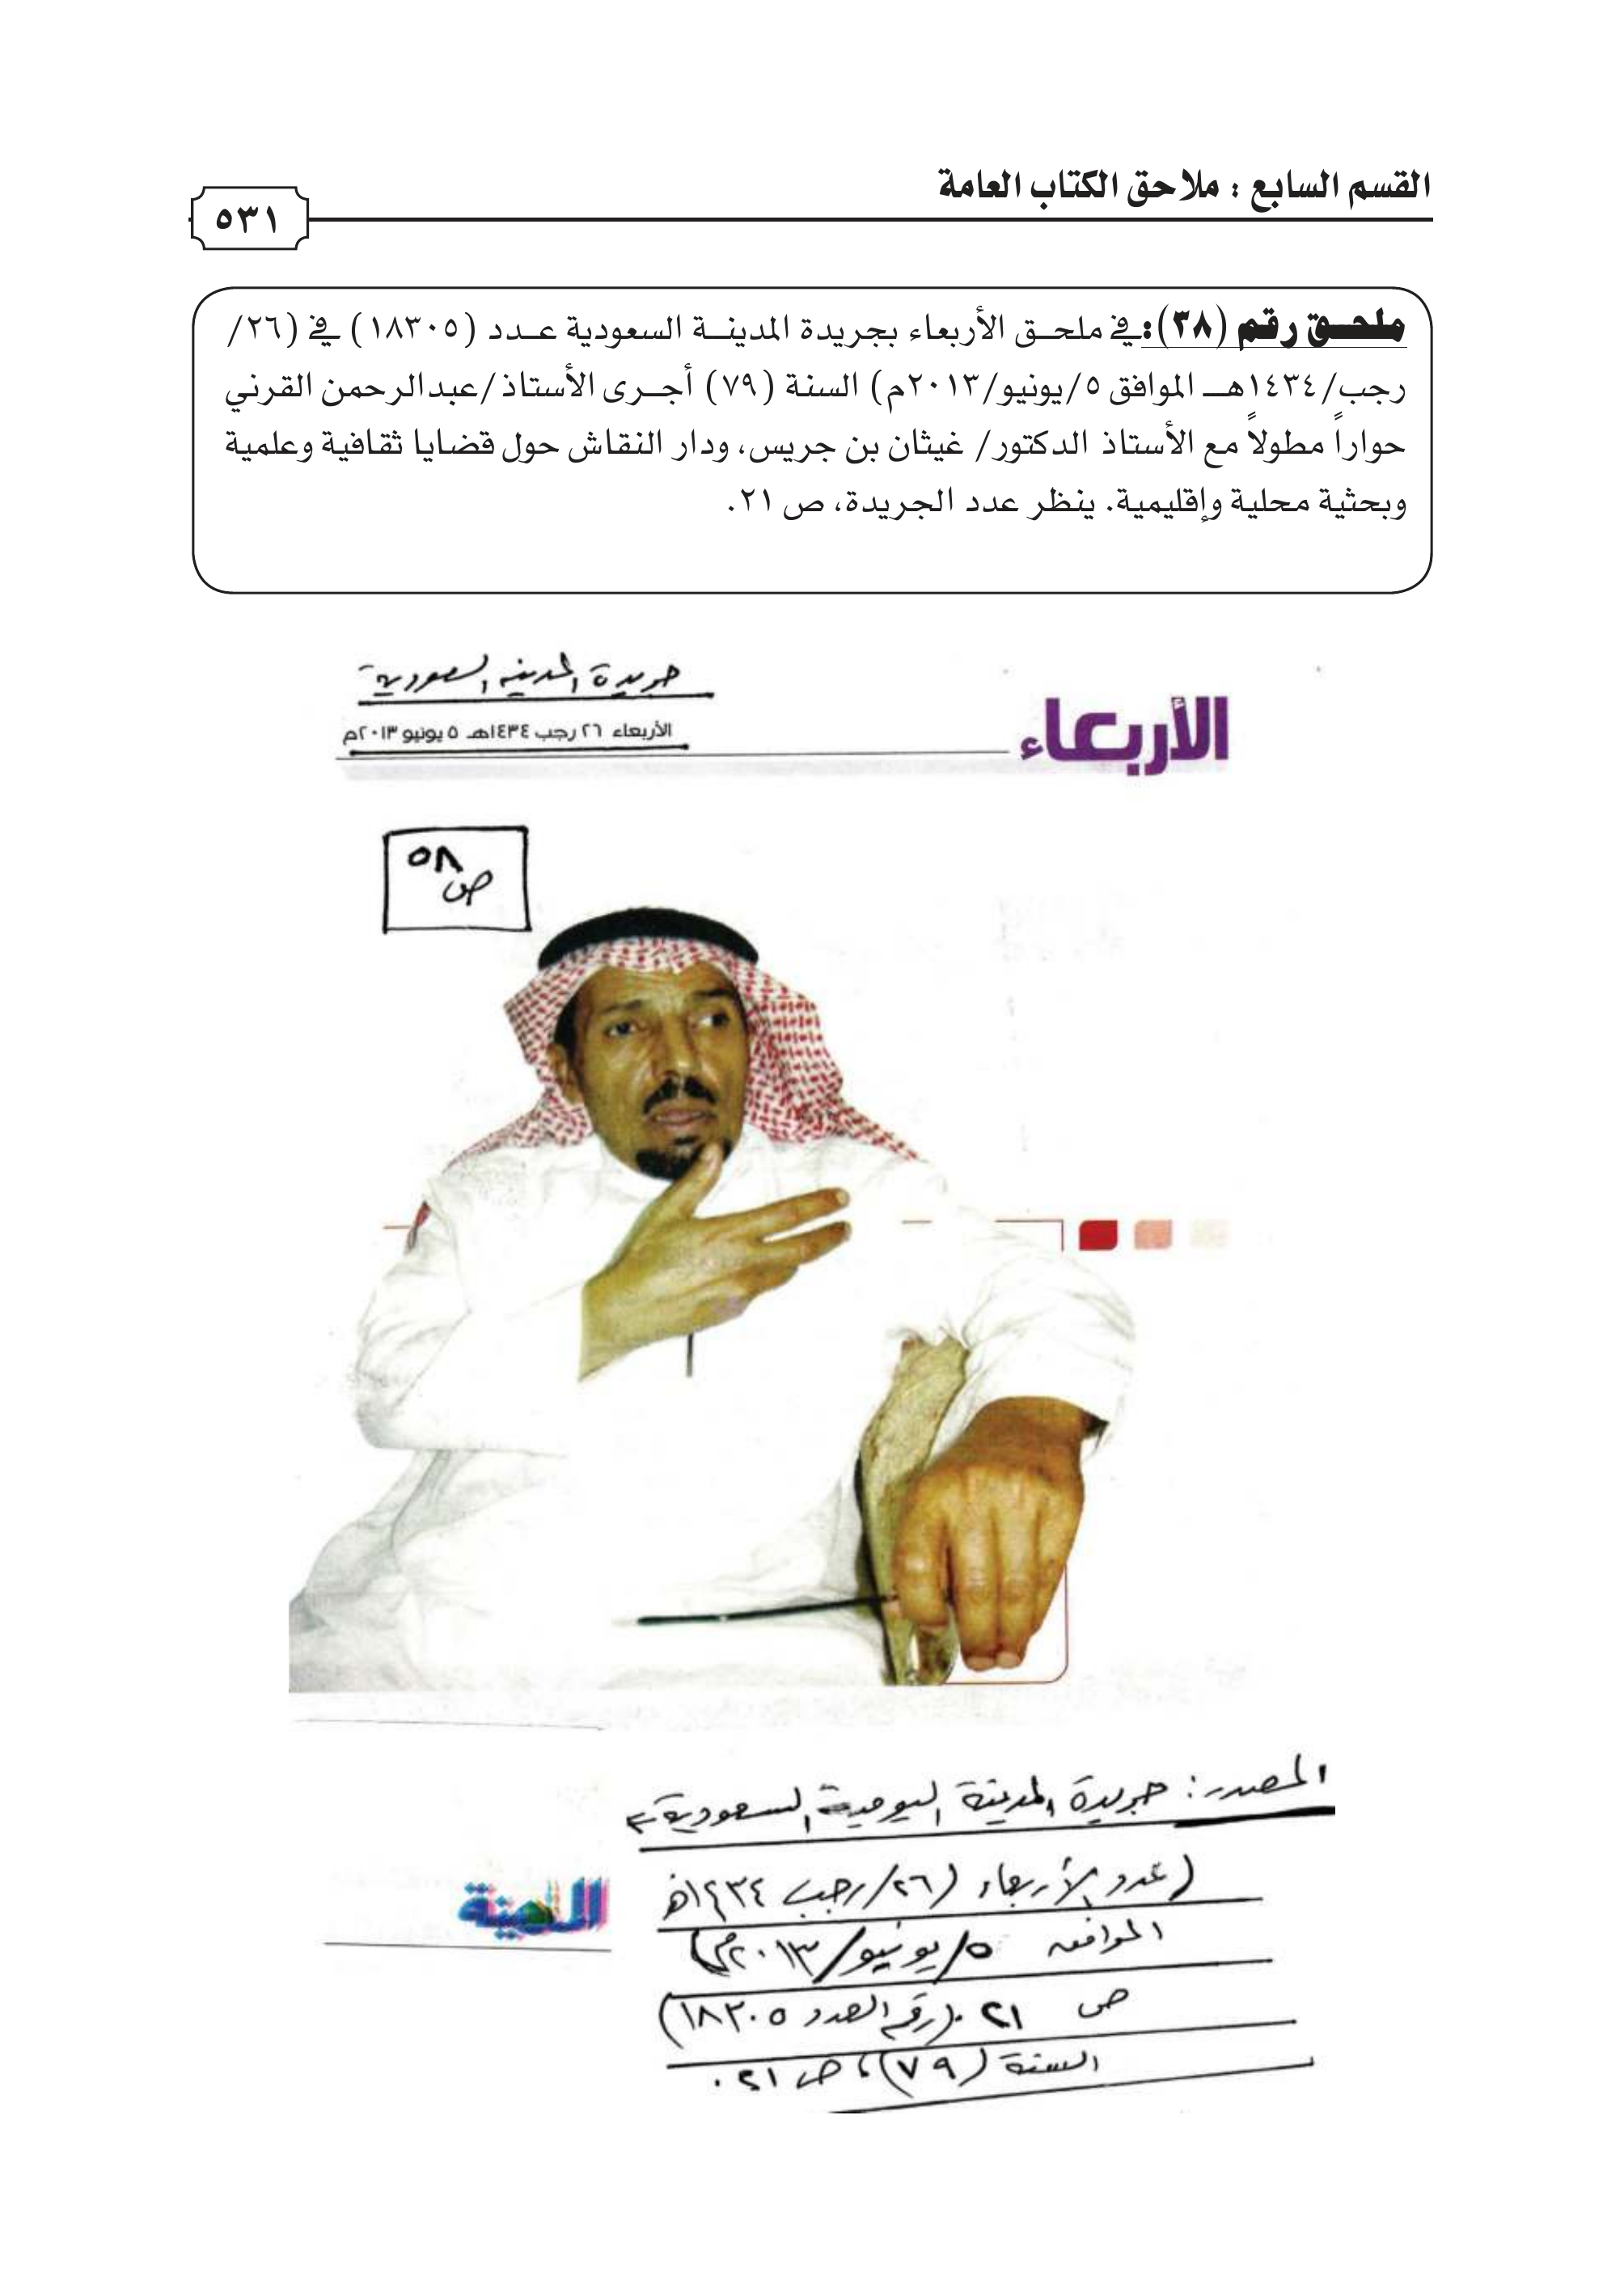 القسم السابع : ملاحق الكتاب العامة
٥٣١
ملحق رقم (٣٨): في ملحق الأربعاء بجريدة المدينة السعودية عدد (١٨٣٠٥) في (٢٦/
رجب/١٤٣٤هـ الموافق ٥/يونيو/٢٠١٣م) السنة (٧٩) أجرى الأستاذ/عبدالرحمن القرني
حواراً مطولاً مع الأستاذ الدكتور/ غيثان بن جريس، ودار النقاش حول قضايا ثقافية وعلمية
وبحثية محلية وإقليمية. ينظر عدد الجريدة، ص ٢١.
جريدة المدينة السعودية
الأربعاء
الأربعاء ٢٦ رجب ١٤٣٤هـ ٥ يونيو ٢٠١٣م
٥٨
ص
المصدر: جريدة المدينة اليومية السعودية
(عدد الأربعاء (٢٦/رجب ١٤٣٤هـ
المدينة
الموافق ٥/يونيو/٢٠١٣م)
ص ٢١ .(رقم العدد ١٨٣٠٥)
السنة (٧٩)، ص ٢١.